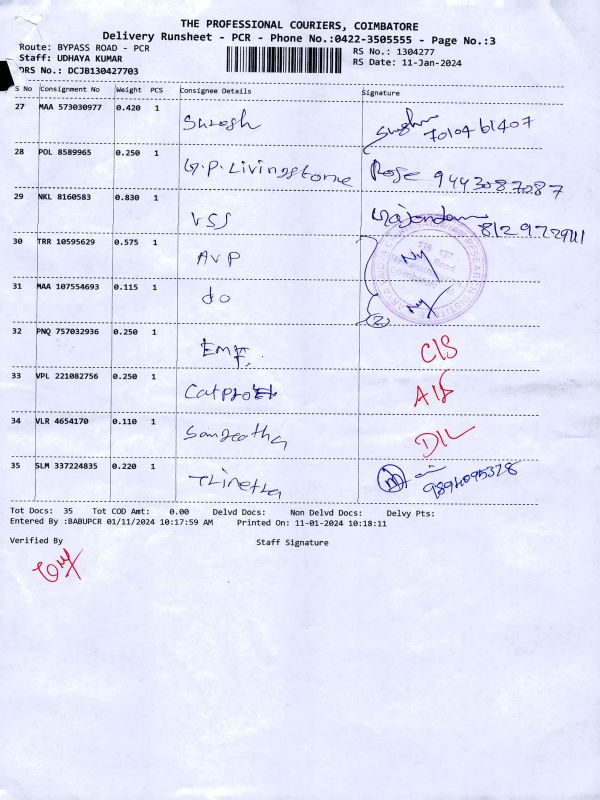 THE PROFESSIONAL COURIERS, COIMBATORE
Delivery Runsheet - PCR - Phone No.:0422-3505555 - Page No.:3
Route: BYPASS ROAD - PCR RS No.: 1304277
Staff: UDHAYA KUMAR RS Date: 11-Jan-2024
DRS No.: DCJB130427703
S No Consignment No Weight PCS Consignee Details Signature
27 MAA 573030977 0.420 1 Suresh 7010461407
28 POL 8589965 0.250 1 G.P. Livingstone Rose 9443087087
29 NKL 8160583 0.830 1 VSS Rajendan
30 TRR 10595629 0.575 1 AVP
31 MAA 107554693 0.115 1 do
(2)
32 PNQ 757032936 0.250 1 CIS
33 VPL 221082756 0.250 1 AIS
34 VLR 4654170 0.110 1 Sangeetha DIL
35 SLM 337224835 0.220 1
Tot Docs: 35 Tot COD Amt: 0.00 Delvd Docs: Non Delvd Docs: Delvy Pts:
Entered By :BABUPCR 01/11/2024 10:17:59 AM Printed On: 11-01-2024 10:18:11
Verified By Staff Signature